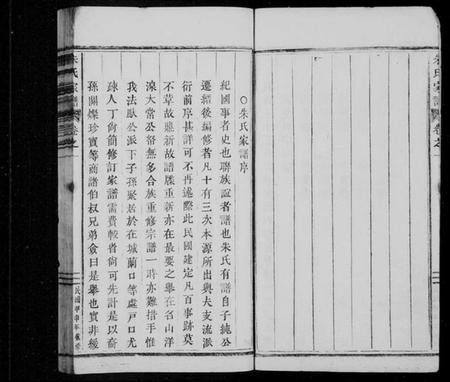 朱氏家譜 卷之一
○朱氏家譜序
紀國事者史也聯族誼者譜也朱氏有譜自子純公
遷紹後編修者凡十有三次本源所出與夫支流派
衍前序甚詳可不再述際此民國建定凡百事跡莫
不革故鼎新故譜牒重新亦在最要之舉在名山洋
濠大常公喬無多合族重修宗譜一時亦難措手惟
我法獻公派下子孫聚居於在城蘭口等處戶口尤
踈人丁尚簡修訂家譜需費較省尚可先計是以裔
孫開燦珍寶等商諸伯叔兄弟僉曰是舉也實非緩
朱氏家譜 卷之一
民國